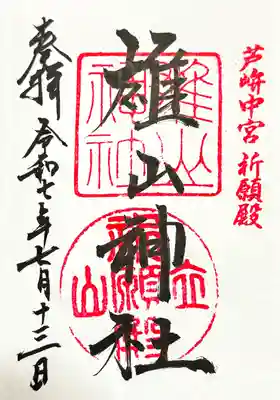 芦峅中宮 祈願殿
雄山神社
奉拝 令和七年七月十三日
雄山神社
立山 祈願殿